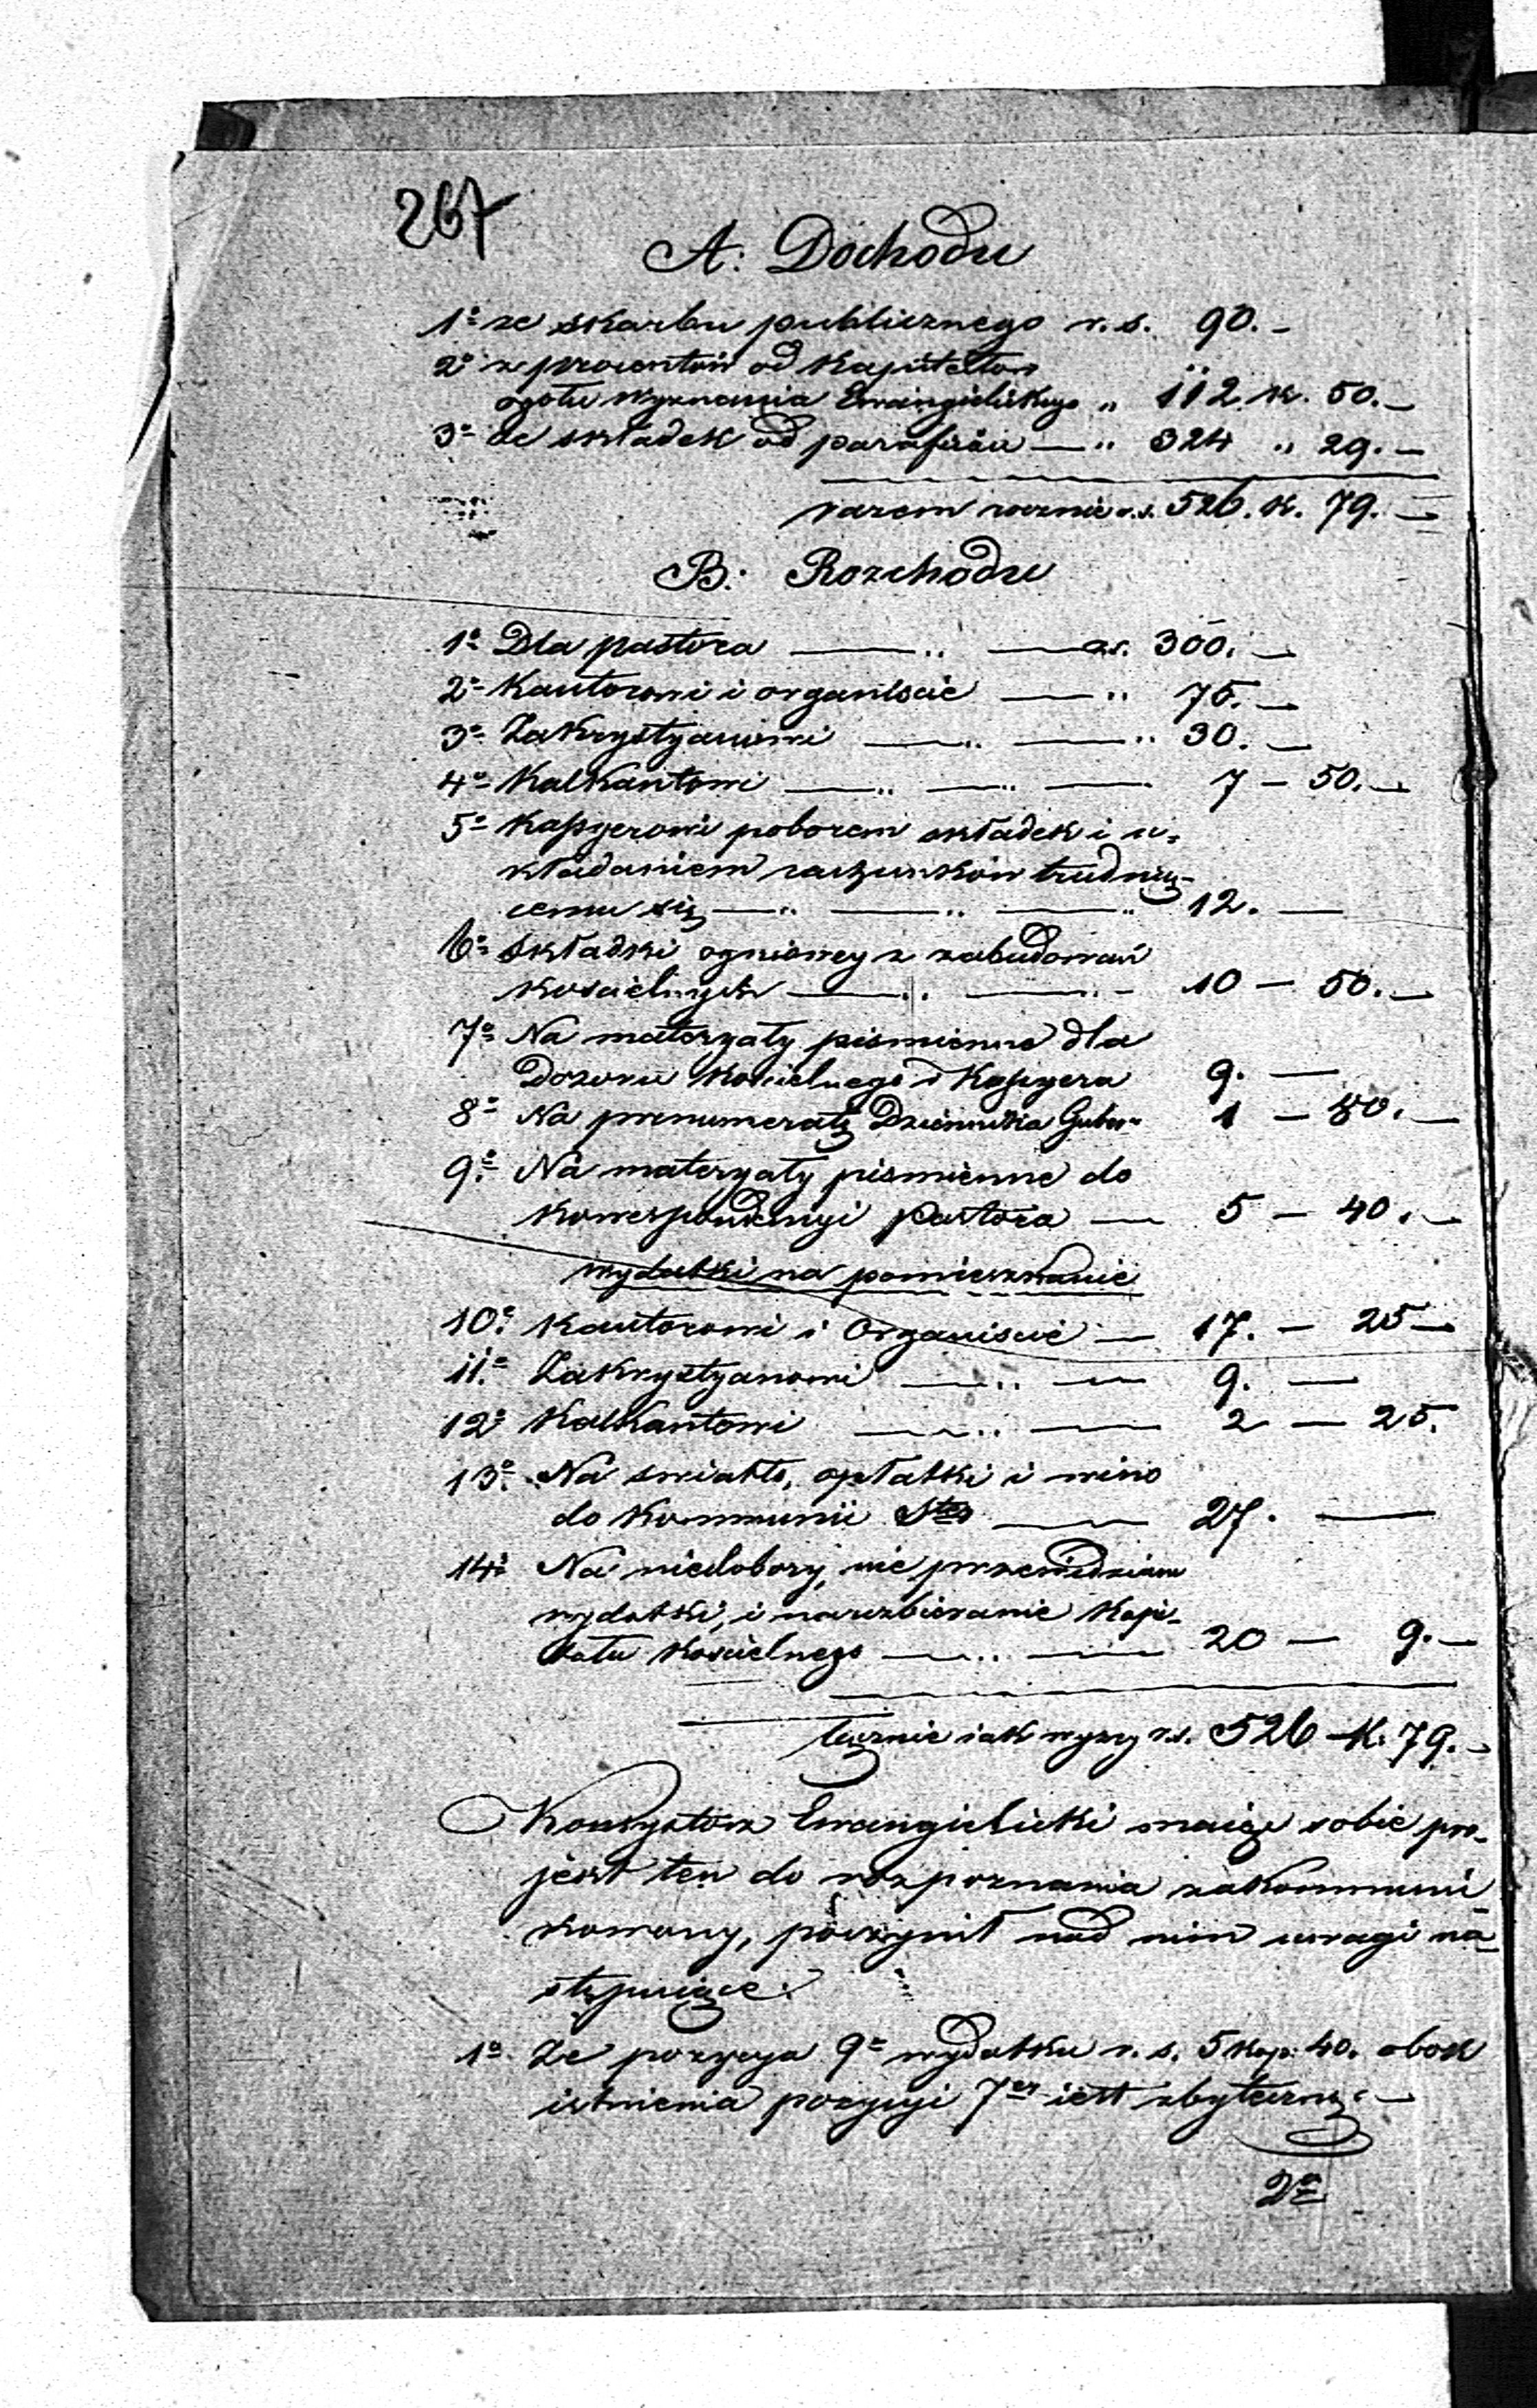 267
A. Dochodu
1o ze skarbu publicznego r. s. 90. –
2o z procentów od kapitałów
ogołu wyznania Ewangielickiego „ 112. k. 50. –
3o ze składek od parafian — „ 324 „ 29. –
razem rocznie r.s. 526. k. 79. –
B. Rozchodu
1o Dla pastora — „ — r.s. 300. –
2o Kantorowi i organiscie — „ 75. –
3o Zakrystyanowi — „ — „ 30. –
4o Kalkantowi — „ — „ — 7 – 50. –
5o Kassyerowi poborem składek i u=
kładaniem rachunków trudnią=
cemu się — „ — „ — „ 12. —
6o Składki ogniowey z zabudowań
kościelnych — „ — „ – 10 – 50. –
7o Na materyały pismienne dla
Dozoru kościelnego i Kassyera 9. —
8o Na prenumeratę Dziennika Gubern 1 – 80. –
9o Na materyały pismienne do
korrespondencyi pastora — 5 – 40. –
wydatki na pomieszkanie
10o Kantorowi i Organiscie — 17. – 25 –
11o Zakrystyanowi — „ — 9. —
12o Kalkantowi — „ — 2 – 25.
13o Na swiatło, opłatki i wino
do Kommunii Stey — 27. —
14o Na niedobory, nie przewidziane
wydatki, i na uzbieranie kapi=
tału kościelnego — „ — 20 – 9. –
łącznie iak wyzey r.s. 526 – k. 79. –
Konsystorz Ewangielicki maiąc sobie pro=
jekt ten do rozpoznania zakommuni
kowany, poczynił nad nim uwagi na=
stępuiące:
1o Ze pozycya 9a wydatku r. s. 5 kop. 40. obok
istnienia pozycyi 7ey iest zbyteczną. –
2o